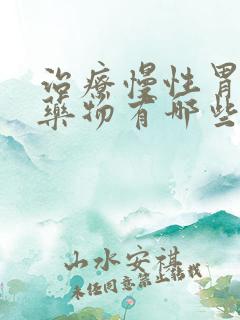 治療慢性胃
藥物有哪些
山水安祺
未经同意禁止转载